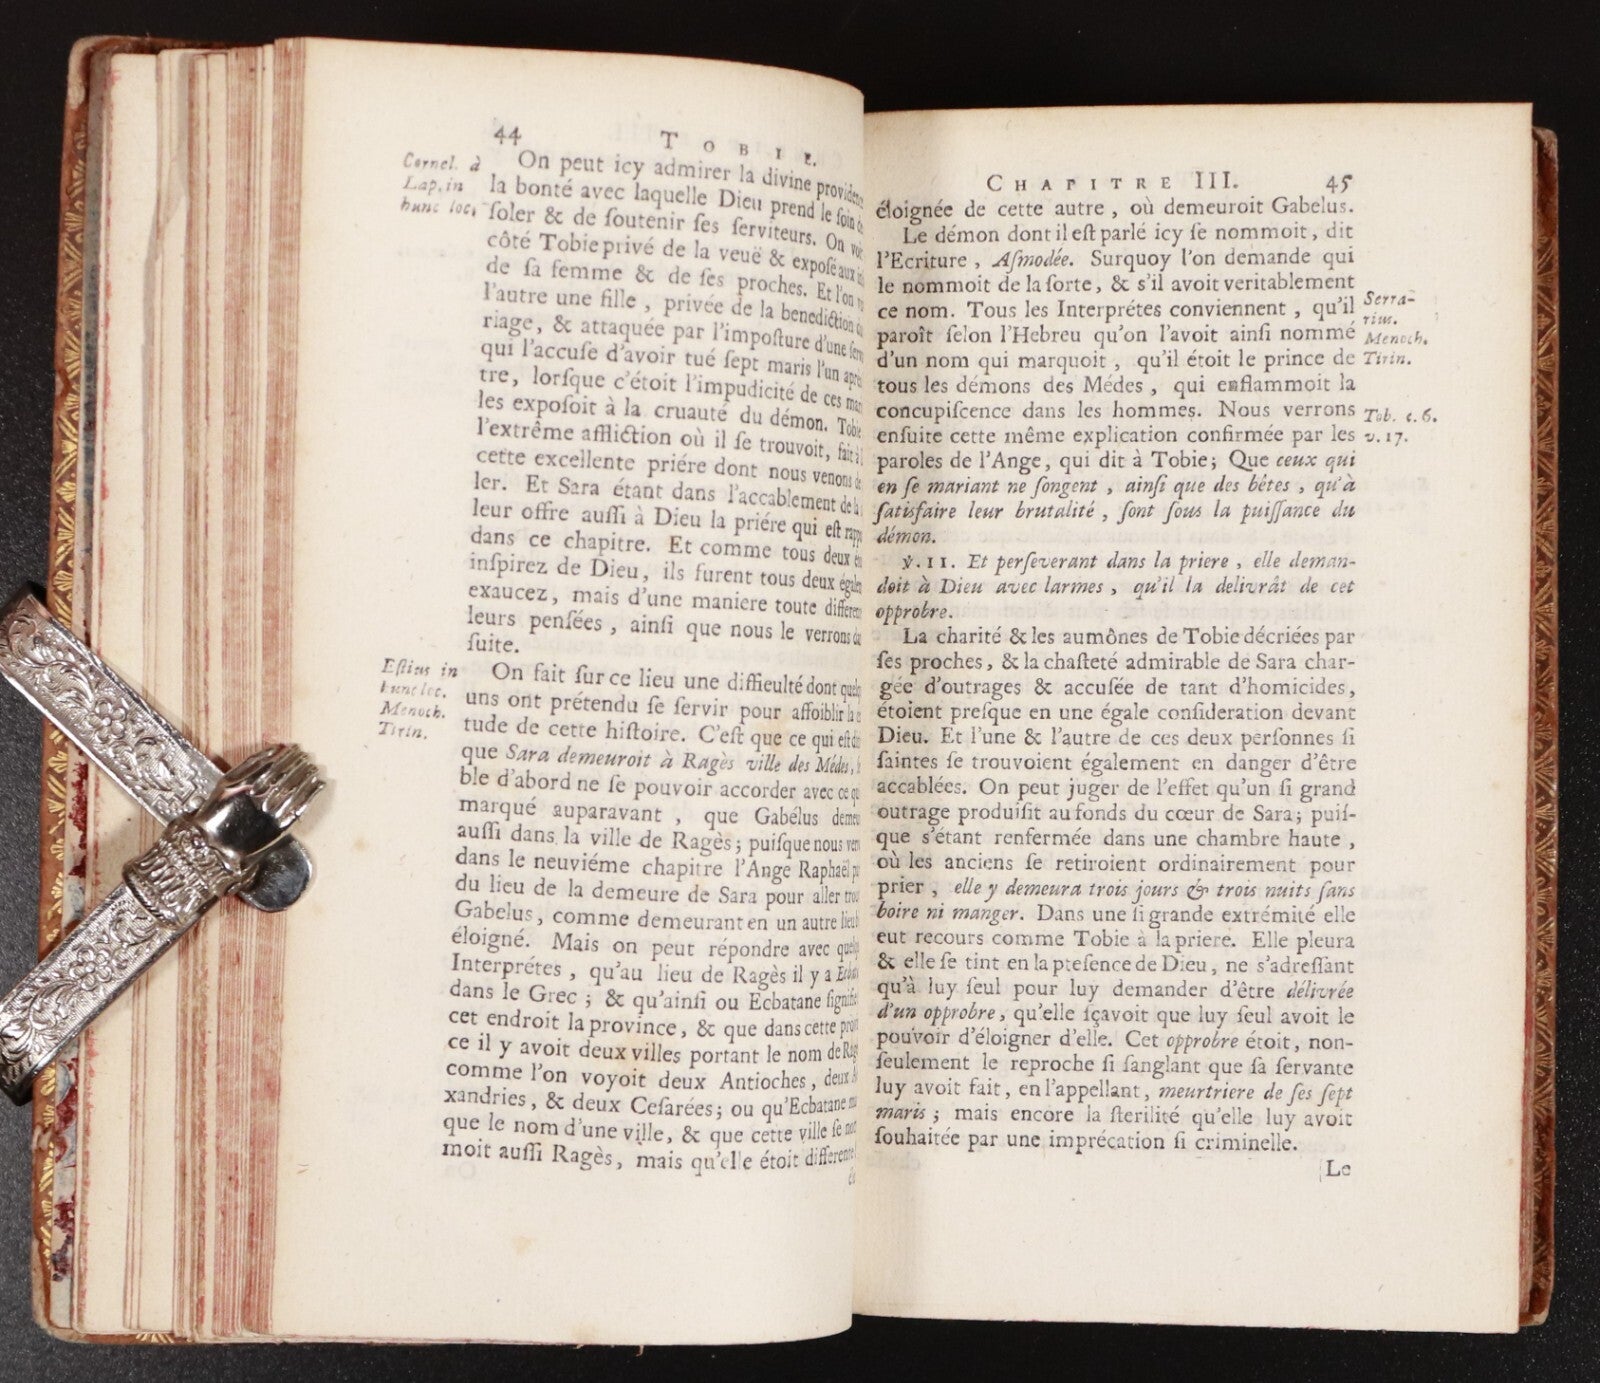 44 TOBIE.
Cornel. à
Lap. in
hunc loc.
On peut icy admirer la divine
la bonté avec laquelle Dieu prend le ſoin
ſoler & de ſoutenir ſes ſerviteurs. On
côté Tobie privé de la veuë & expoſé aux
de ſa femme & de ſes proches. Et l'on
l'autre une fille, privée de la benediction
riage, & attaquée par l'impoſture d'une
qui l'accuſe d'avoir tué ſept maris l'un
tre, lorſque c'étoit l'impudicité de ces
les expoſoit à la cruauté du démon.
l'extrême affliction où il ſe trouvoit, fait
cette excellente priére dont nous venons
ler. Et Sara étant dans l'accablement de
leur offre auſſi à Dieu la priére qui eſt
dans ce chapitre. Et comme tous deux
inſpirez de Dieu, ils furent tous deux
exaucez, mais d'une maniere toute
leurs penſées, ainſi que nous le verrons
ſuite.
Eſtius in
hunc loc.
Menoch.
Tirin.
On fait ſur ce lieu une difficulté dont
uns ont prétendu ſe ſervir pour affoiblir la
tude de cette hiſtoire. C'eſt que ce qui eſt
que Sara demeuroit à Ragès ville des Médes,
ble d'abord ne ſe pouvoir accorder avec ce
marqué auparavant, que Gabélus
auſſi dans la ville de Ragès; puiſque nous
dans le neuviéme chapitre l'Ange Raphaël
du lieu de la demeure de Sara pour aller
Gabelus, comme demeurant en un autre lieu
éloigné. Mais on peut répondre avec
Interprétes, qu'au lieu de Ragès il y a
dans le Grec; & qu'ainſi ou Ecbatane
cet endroit la province, & que dans cette
ce il y avoit deux villes portant le nom de
comme l'on voyoit deux Antioches, deux
xandries, & deux Ceſarées; ou qu'Ecbatane
que le nom d'une ville, & que cette ville ſe
moit auſſi Ragès, mais qu'elle étoit
CHAPITRE III. 45
éloignée de cette autre, où demeuroit Gabelus.
Le démon dont il eſt parlé icy ſe nommoit, dit
l'Ecriture, Aſmodée. Surquoy l'on demande qui
le nommoit de la ſorte, & s'il avoit veritablement
ce nom. Tous les Interprétes conviennent, qu'il
paroît ſelon l'Hebreu qu'on l'avoit ainſi nommé
d'un nom qui marquoit, qu'il étoit le prince de
tous les démons des Médes, qui enflammoit la
concupiſcence dans les hommes. Nous verrons
enſuite cette même explication confirmée par les
paroles de l'Ange, qui dit à Tobie; Que ceux qui
en ſe mariant ne ſongent, ainſi que des bêtes, qu'à
ſatisfaire leur brutalité, ſont ſous la puiſſance du
démon.
Serra-
rius.
Menoch.
Tirin.
Tob. c. 6.
v. 17.
℣. 11. Et perſeverant dans la priere, elle deman-
doit à Dieu avec larmes, qu'il la delivrât de cet
opprobre.
La charité & les aumônes de Tobie décriées par
ſes proches, & la chaſteté admirable de Sara char-
gée d'outrages & accuſée de tant d'homicides,
étoient preſque en une égale conſideration devant
Dieu. Et l'une & l'autre de ces deux perſonnes ſi
ſaintes ſe trouvoient également en danger d'être
accablées. On peut juger de l'effet qu'un ſi grand
outrage produiſit au fonds du cœur de Sara; puiſ-
que s'étant renfermée dans une chambre haute,
où les anciens ſe retiroient ordinairement pour
prier, elle y demeura trois jours & trois nuits ſans
boire ni manger. Dans une ſi grande extrémité elle
eut recours comme Tobie à la priere. Elle pleura
& elle ſe tint en la pteſence de Dieu, ne s'adreſſant
qu'à luy ſeul pour luy demander d'être délivrée
d'un opprobre, qu'elle ſçavoit que luy ſeul avoit le
pouvoir d'éloigner d'elle. Cet opprobre étoit, non-
ſeulement le reproche ſi ſanglant que ſa ſervante
luy avoit fait, en l'appellant, meurtriere de ſes ſept
maris; mais encore la ſterilité qu'elle luy avoit
ſouhaitée par une imprécation ſi criminelle.
Le